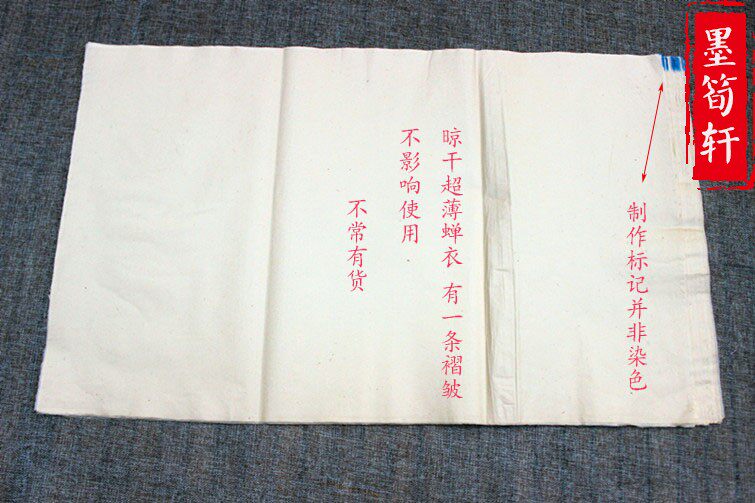 墨筍轩
制作标记并非染色
晾干超薄蝉衣 有一条褶皱
不影响使用
不常有货